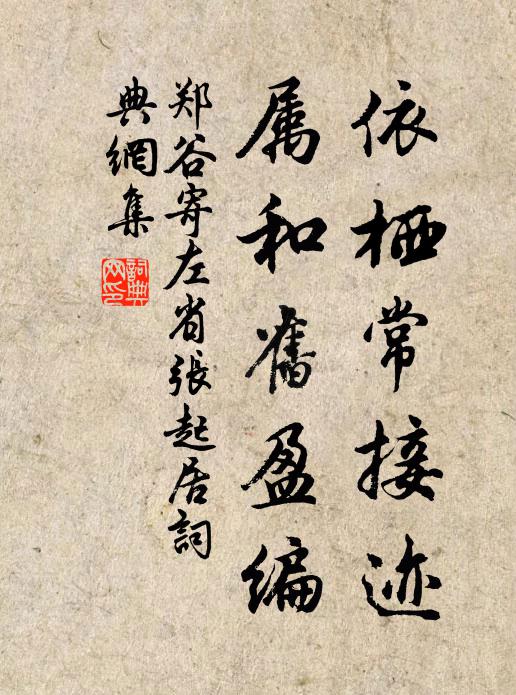 依栖常接迹
属和旧盈编
郑谷寄左省張起居詞
典網集
詞典网印